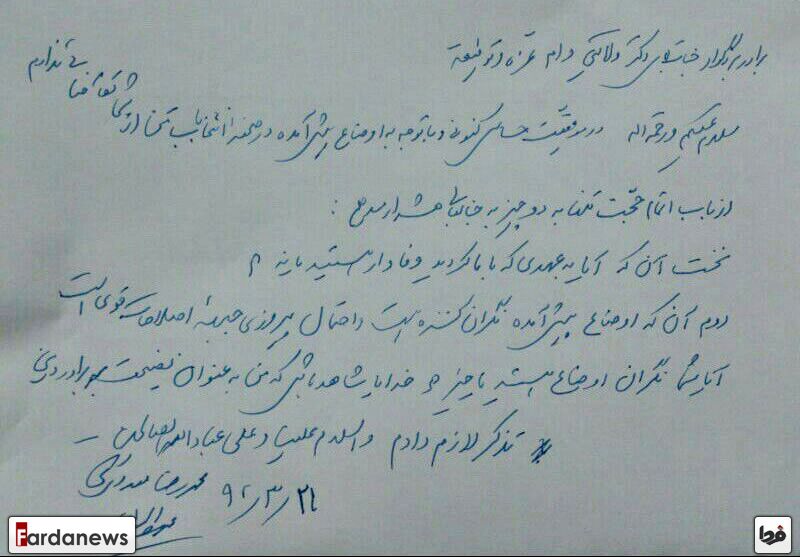 برادر بزرگوار جناب آقای دکتر ولایتی دام عزه و توفیقه
سلام علیکم و رحمة اله در موقعیت حساس کنونی و با توجه به اوضاع پیش آمده در صحنه انتخابات تنها از شما تقاضایی ندارم
از باب اتمام حجت تلفنا به دو چیز به جنابعالی هشدار میدهم :
نخست آن که آیا به عهدی که با ما کردید وفادار هستید یا نه ؟
دوم آن که اوضاع پیش آمده نگران کننده است و احتمال پیروزی جبهه اصلاحات قوی است
آیا شما نگران اوضاع هستید یا خیر ؟ خدایا شاهد باش که من به عنوان نصیحت برادر دینی
تذکر لازم دادم والسلام علینا و علی عباد الله الصالحین
محمد رضا مهدوی کنی
۹۲/۳/۲۱
Fardanews
فردا